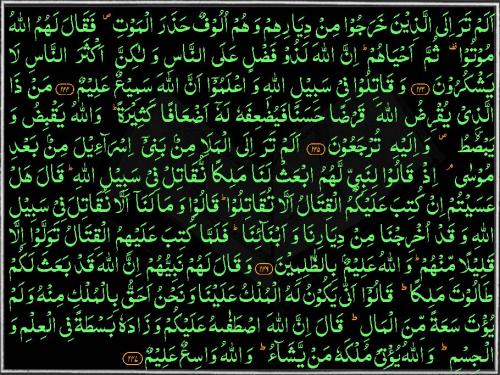 اَلَمۡ تَرَ اِلَى الَّذِيۡنَ خَرَجُوۡا مِنۡ دِيَارِهِمۡ وَهُمۡ اُلُوۡفٌ حَذَرَ الۡمَوۡتِ ۪ فَقَالَ لَهُمُ اللّٰهُ
مُوۡتُوۡا ۟ ثُمَّ اَحۡيَاهُمۡ ؕ اِنَّ اللّٰهَ لَذُوۡ فَضۡلٍ عَلَى النَّاسِ وَلٰـكِنَّ اَكۡثَرَ النَّاسِ لَا
يَشۡکُرُوۡنَ ﴿۲۴۳﴾ وَقَاتِلُوۡا فِىۡ سَبِيۡلِ اللّٰهِ وَاعۡلَمُوۡٓا اَنَّ اللّٰهَ سَمِيۡعٌ عَلِيۡمٌ ﴿۲۴۴﴾ مَنۡ ذَا
الَّذِىۡ يُقۡرِضُ اللّٰهَ قَرۡضًا حَسَنًا فَيُضٰعِفَهٗ لَهٗۤ اَضۡعَافًا کَثِيۡرَةً ‌ؕ وَاللّٰهُ يَقۡبِضُ وَ
يَبۡصُۜطُ ۪ وَ اِلَيۡهِ تُرۡجَعُوۡنَ ﴿۲۴۵﴾ اَلَمۡ تَرَ اِلَى الۡمَلَاِ مِنۡۢ بَنِىۡٓ اِسۡرَآءِيۡلَ مِنۡۢ بَعۡدِ
مُوۡسٰى‌ۘ اِذۡ قَالُوۡا لِنَبِىٍّ لَّهُمُ ابۡعَثۡ لَنَا مَلِکًا نُّقَاتِلۡ فِىۡ سَبِيۡلِ اللّٰهِ‌ؕ قَالَ هَلۡ
عَسَيۡتُمۡ اِنۡ کُتِبَ عَلَيۡکُمُ الۡقِتَالُ اَلَّا تُقَاتِلُوۡا ؕ قَالُوۡا وَمَا لَنَآ اَلَّا نُقَاتِلَ فِىۡ سَبِيۡلِ
اللّٰهِ وَقَدۡ اُخۡرِجۡنَا مِنۡ دِيَارِنَا وَاَبۡنَآئِنَا ‌ؕ فَلَمَّا کُتِبَ عَلَيۡهِمُ الۡقِتَالُ تَوَلَّوۡا اِلَّا
قَلِيۡلًا مِّنۡهُمۡ‌ؕ وَاللّٰهُ عَلِيۡمٌۢ بِالظّٰلِمِيۡنَ ﴿۲۴۶﴾ وَقَالَ لَهُمۡ نَبِيُّهُمۡ اِنَّ اللّٰهَ قَدۡ بَعَثَ لَکُمۡ
طَالُوۡتَ مَلِکًا ‌ؕ قَالُوۡٓا اَنّٰى يَكُوۡنُ لَهُ الۡمُلۡكُ عَلَيۡنَا وَنَحۡنُ اَحَقُّ بِالۡمُلۡكِ مِنۡهُ وَلَمۡ
يُؤۡتَ سَعَةً مِّنَ الۡمَالِ‌ؕ قَالَ اِنَّ اللّٰهَ اصۡطَفٰٮهُ عَلَيۡکُمۡ وَزَادَهٗ بَسۡطَةً فِى الۡعِلۡمِ وَ
الۡجِسۡمِ‌ؕ وَاللّٰهُ يُؤۡتِىۡ مُلۡکَهٗ مَنۡ يَّشَآءُ ‌ؕ وَاللّٰهُ وَاسِعٌ عَلِيۡمٌ ﴿۲۴۷﴾